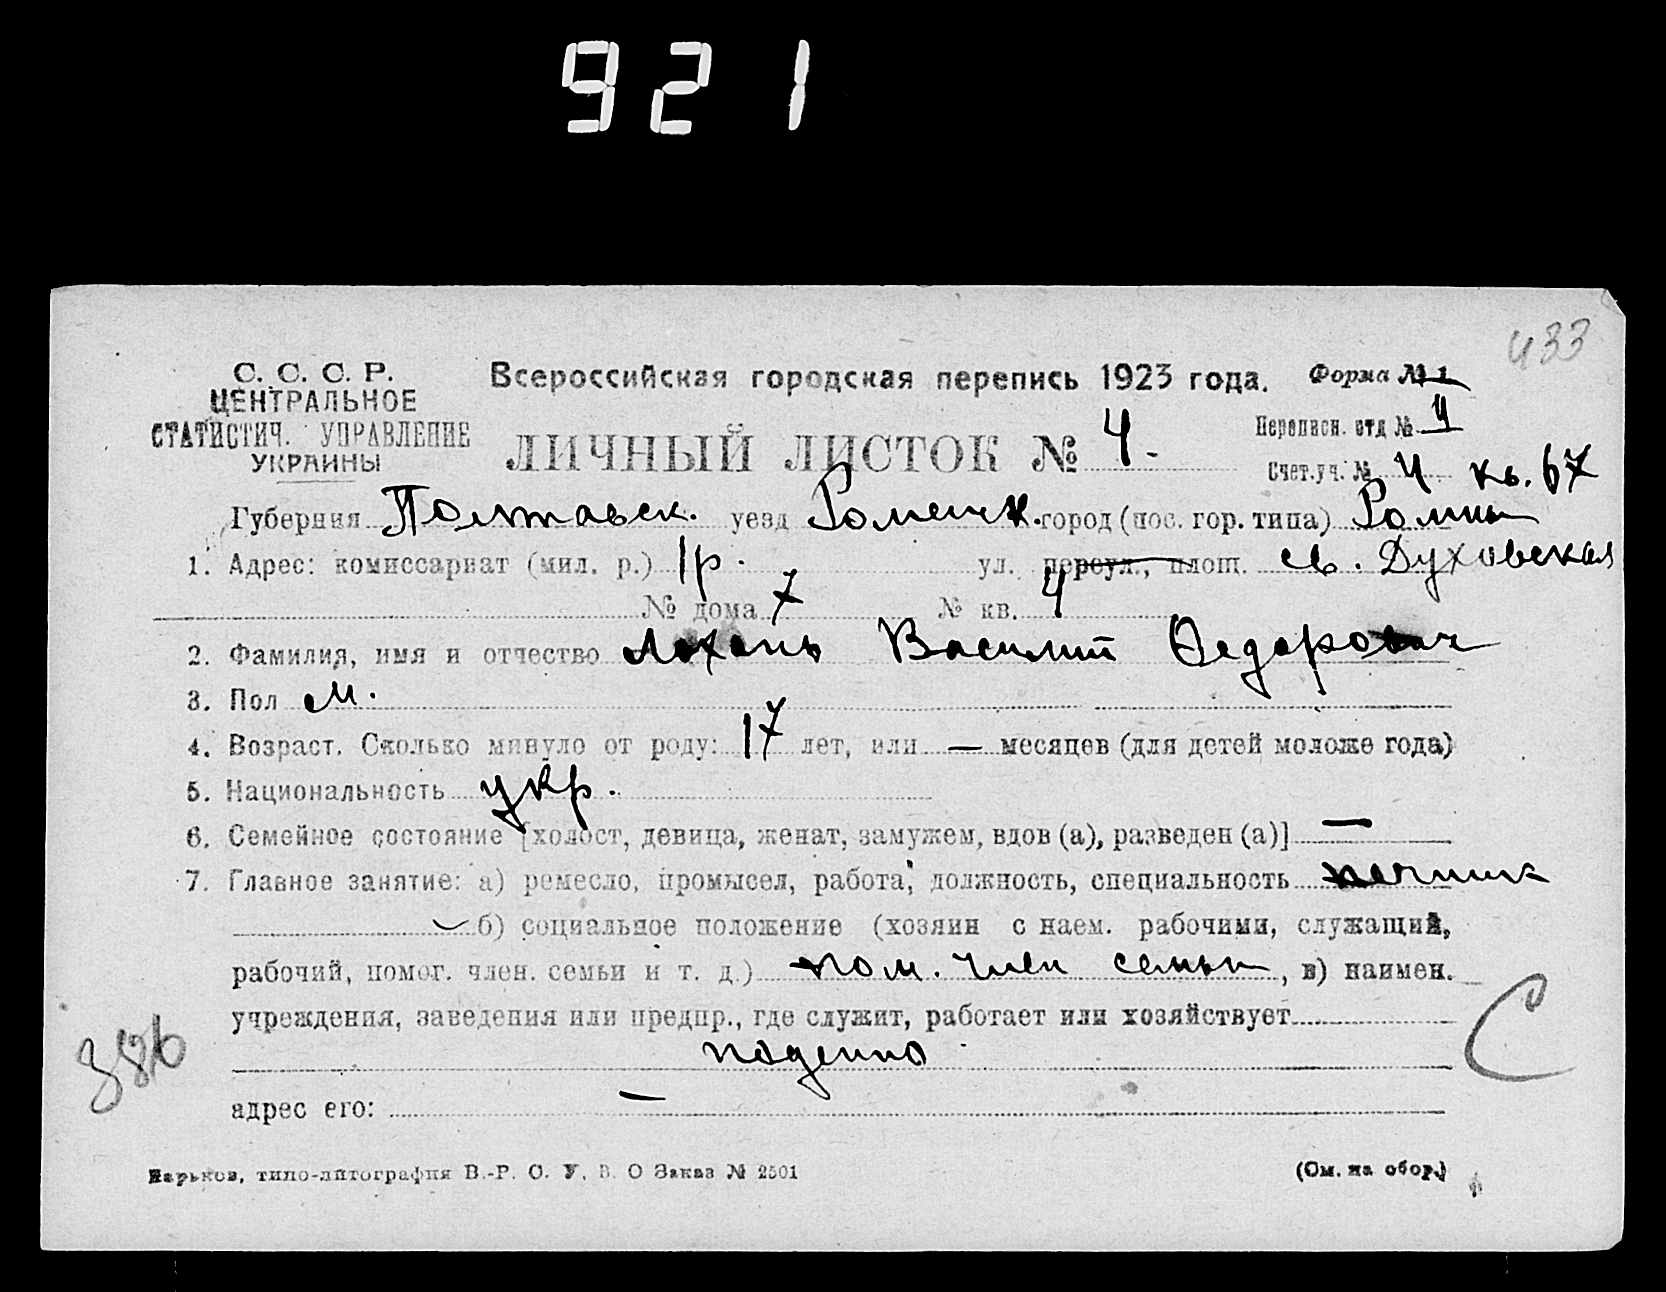 921
433
С. С. С. Р.
ЦЕНТРАЛЬНОЕ
СТАТИСТИЧ. УПРАВЛЕНИЕ
УКРАИНЫ
Всероссийская городская перепись 1923 года. Форма № 1
ЛИЧНЫЙ ЛИСТОК № 4.
Переписн. отд №
Счет.уч. № 4 кв. 67
Губерния Полтавск. уезд Роменск. город (пос. гор. типа) Ромны
1. Адрес: комиссариат (мил. р.) 1р. ул. переул., площ. св. Духовская
№ дома 7 № кв. 4
2. Фамилия, имя и отчество Лохань Василий Ѳедорович
3. Пол м.
4. Возраст. Сколько минуло от роду: 17 лет, или — месяцев (для детей моложе года)
5. Национальность укр.
6. Семейное состояние [холост, девица, женат, замужем, вдов (а), разведен (а)] —
7. Главное занятие: а) ремесло, промысел, работа, должность, специальность печник
б) социальное положение (хозяин с наем. рабочими, служащий,
рабочий, помог. член. семьи и т. д.) пом. член семьи, в) наимен.
учреждения, заведения или предпр., где служит, работает или хозяйствует
поденно
386
С
адрес его: —
Харьков, типо-литография В.-Р. С. У. В. О Заказ № 2501
(См. на обор.)